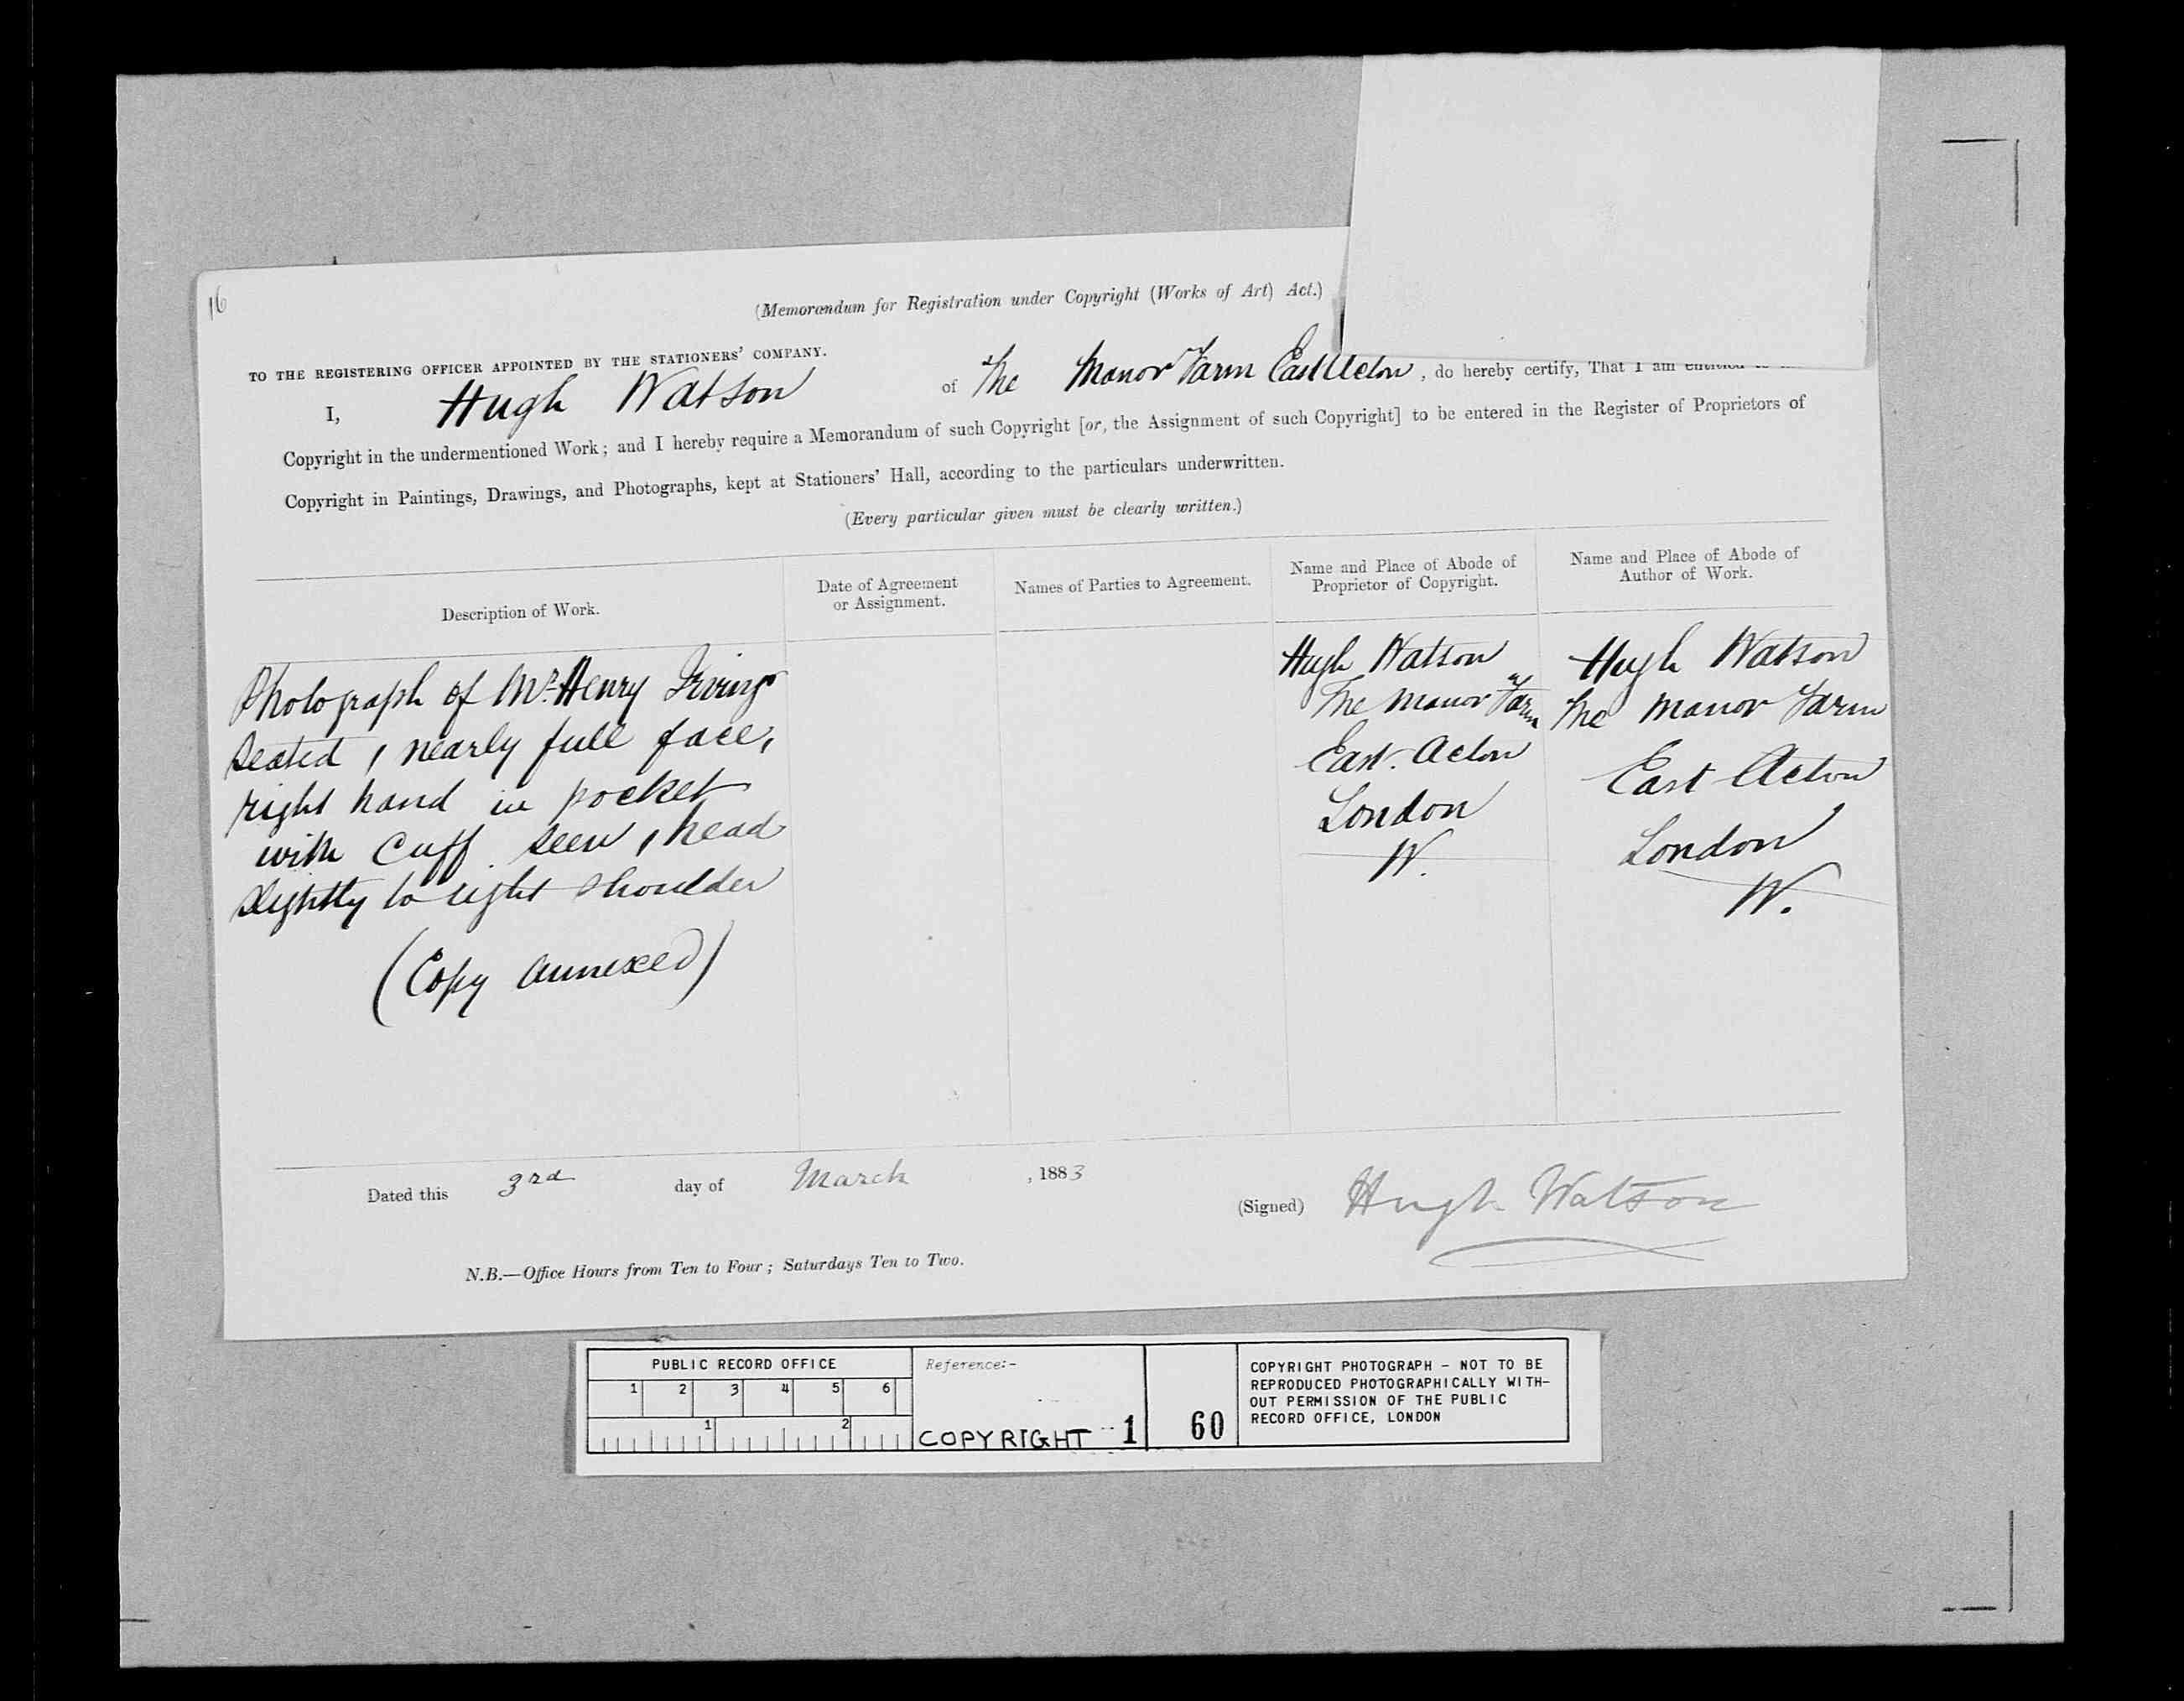 16
(Memorandum for Registration under Copyright (Works of Art) Act.)
TO THE REGISTERING OFFICER APPOINTED BY THE STATIONERS' COMPANY.
I, Hugh Watson of The Manor Farm East Acton, do hereby certify, That I am entitled
Copyright in the undermentioned Work; and I hereby require a Memorandum of such Copyright [or, the Assignment of such Copyright] to be entered in the Register of Proprietors of
Copyright in Paintings, Drawings, and Photographs, kept at Stationers' Hall, according to the particulars underwritten.
(Every particular given must be clearly written.)
Description of Work.
Date of Agreement
or Assignment.
Names of Parties to Agreement.
Name and Place of Abode of
Proprietor of Copyright.
Name and Place of Abode of
Author of Work.
Photograph of Mr. Henry Irving
seated, nearly full face,
right hand in pocket
with cuff seen, head
slightly to right shoulder
(Copy annexed)
Hugh Watson
The Manor Farm
East Acton
London
W.
Hugh Watson
The Manor Farm
East Acton
London
W.
Dated this 3rd day of March, 1883
(Signed) Hugh Watson
N.B.—Office Hours from Ten to Four; Saturdays Ten to Two.
PUBLIC RECORD OFFICE
1 2 3 4 5 6
1 2
Reference:-
COPYRIGHT 1
60
COPYRIGHT PHOTOGRAPH - NOT TO BE
REPRODUCED PHOTOGRAPHICALLY WITH-
OUT PERMISSION OF THE PUBLIC
RECORD OFFICE, LONDON